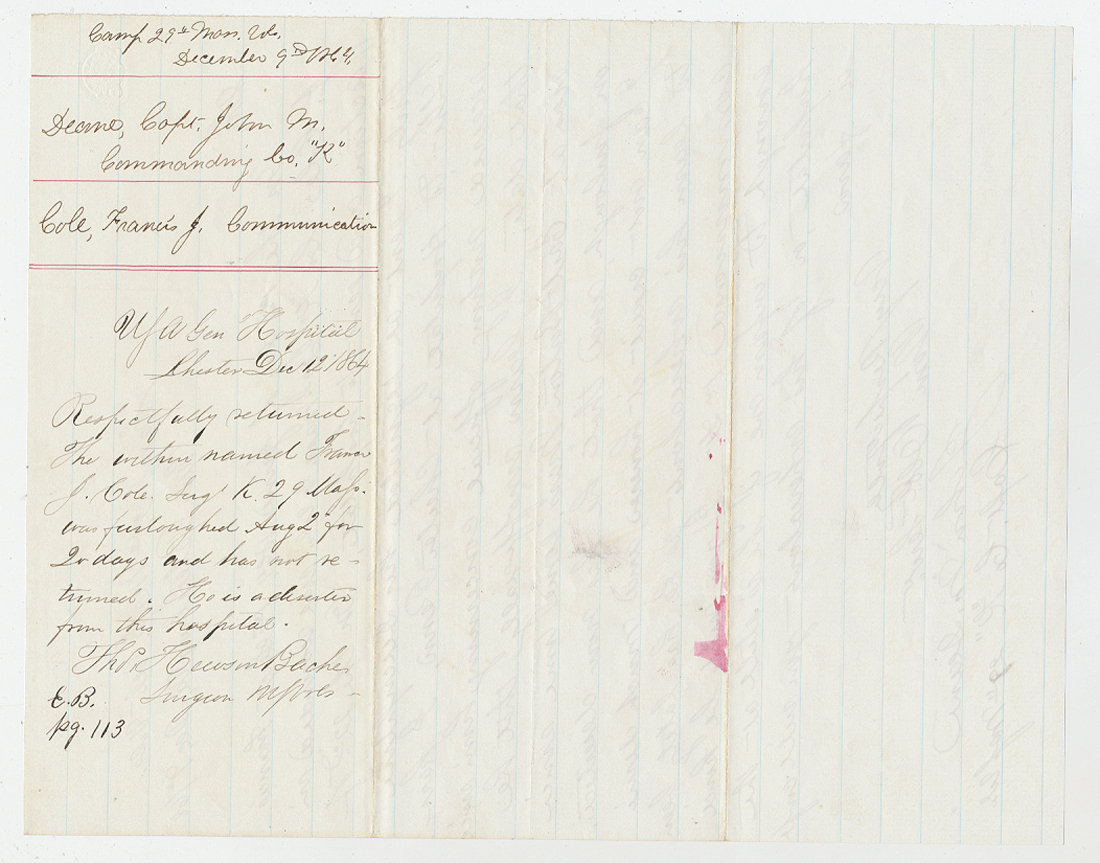 Camp 29th Mass. Vols.
December 9th 1864,
Deane, Capt. John M.
Commanding Co. "K"
Cole, Francis J. Communication
USA Gen Hospital
Chester Dec 12 1864
Respectfully returned -
The within named Francis
J. Cole. Serg' K. 29 Mass.
was furloughed Aug 2" for
20 days and has not re-
turned. He is a deserter
from this hospital.
Thos. Hewson Bache
Surgeon US Vols -
E.B.
pg. 113